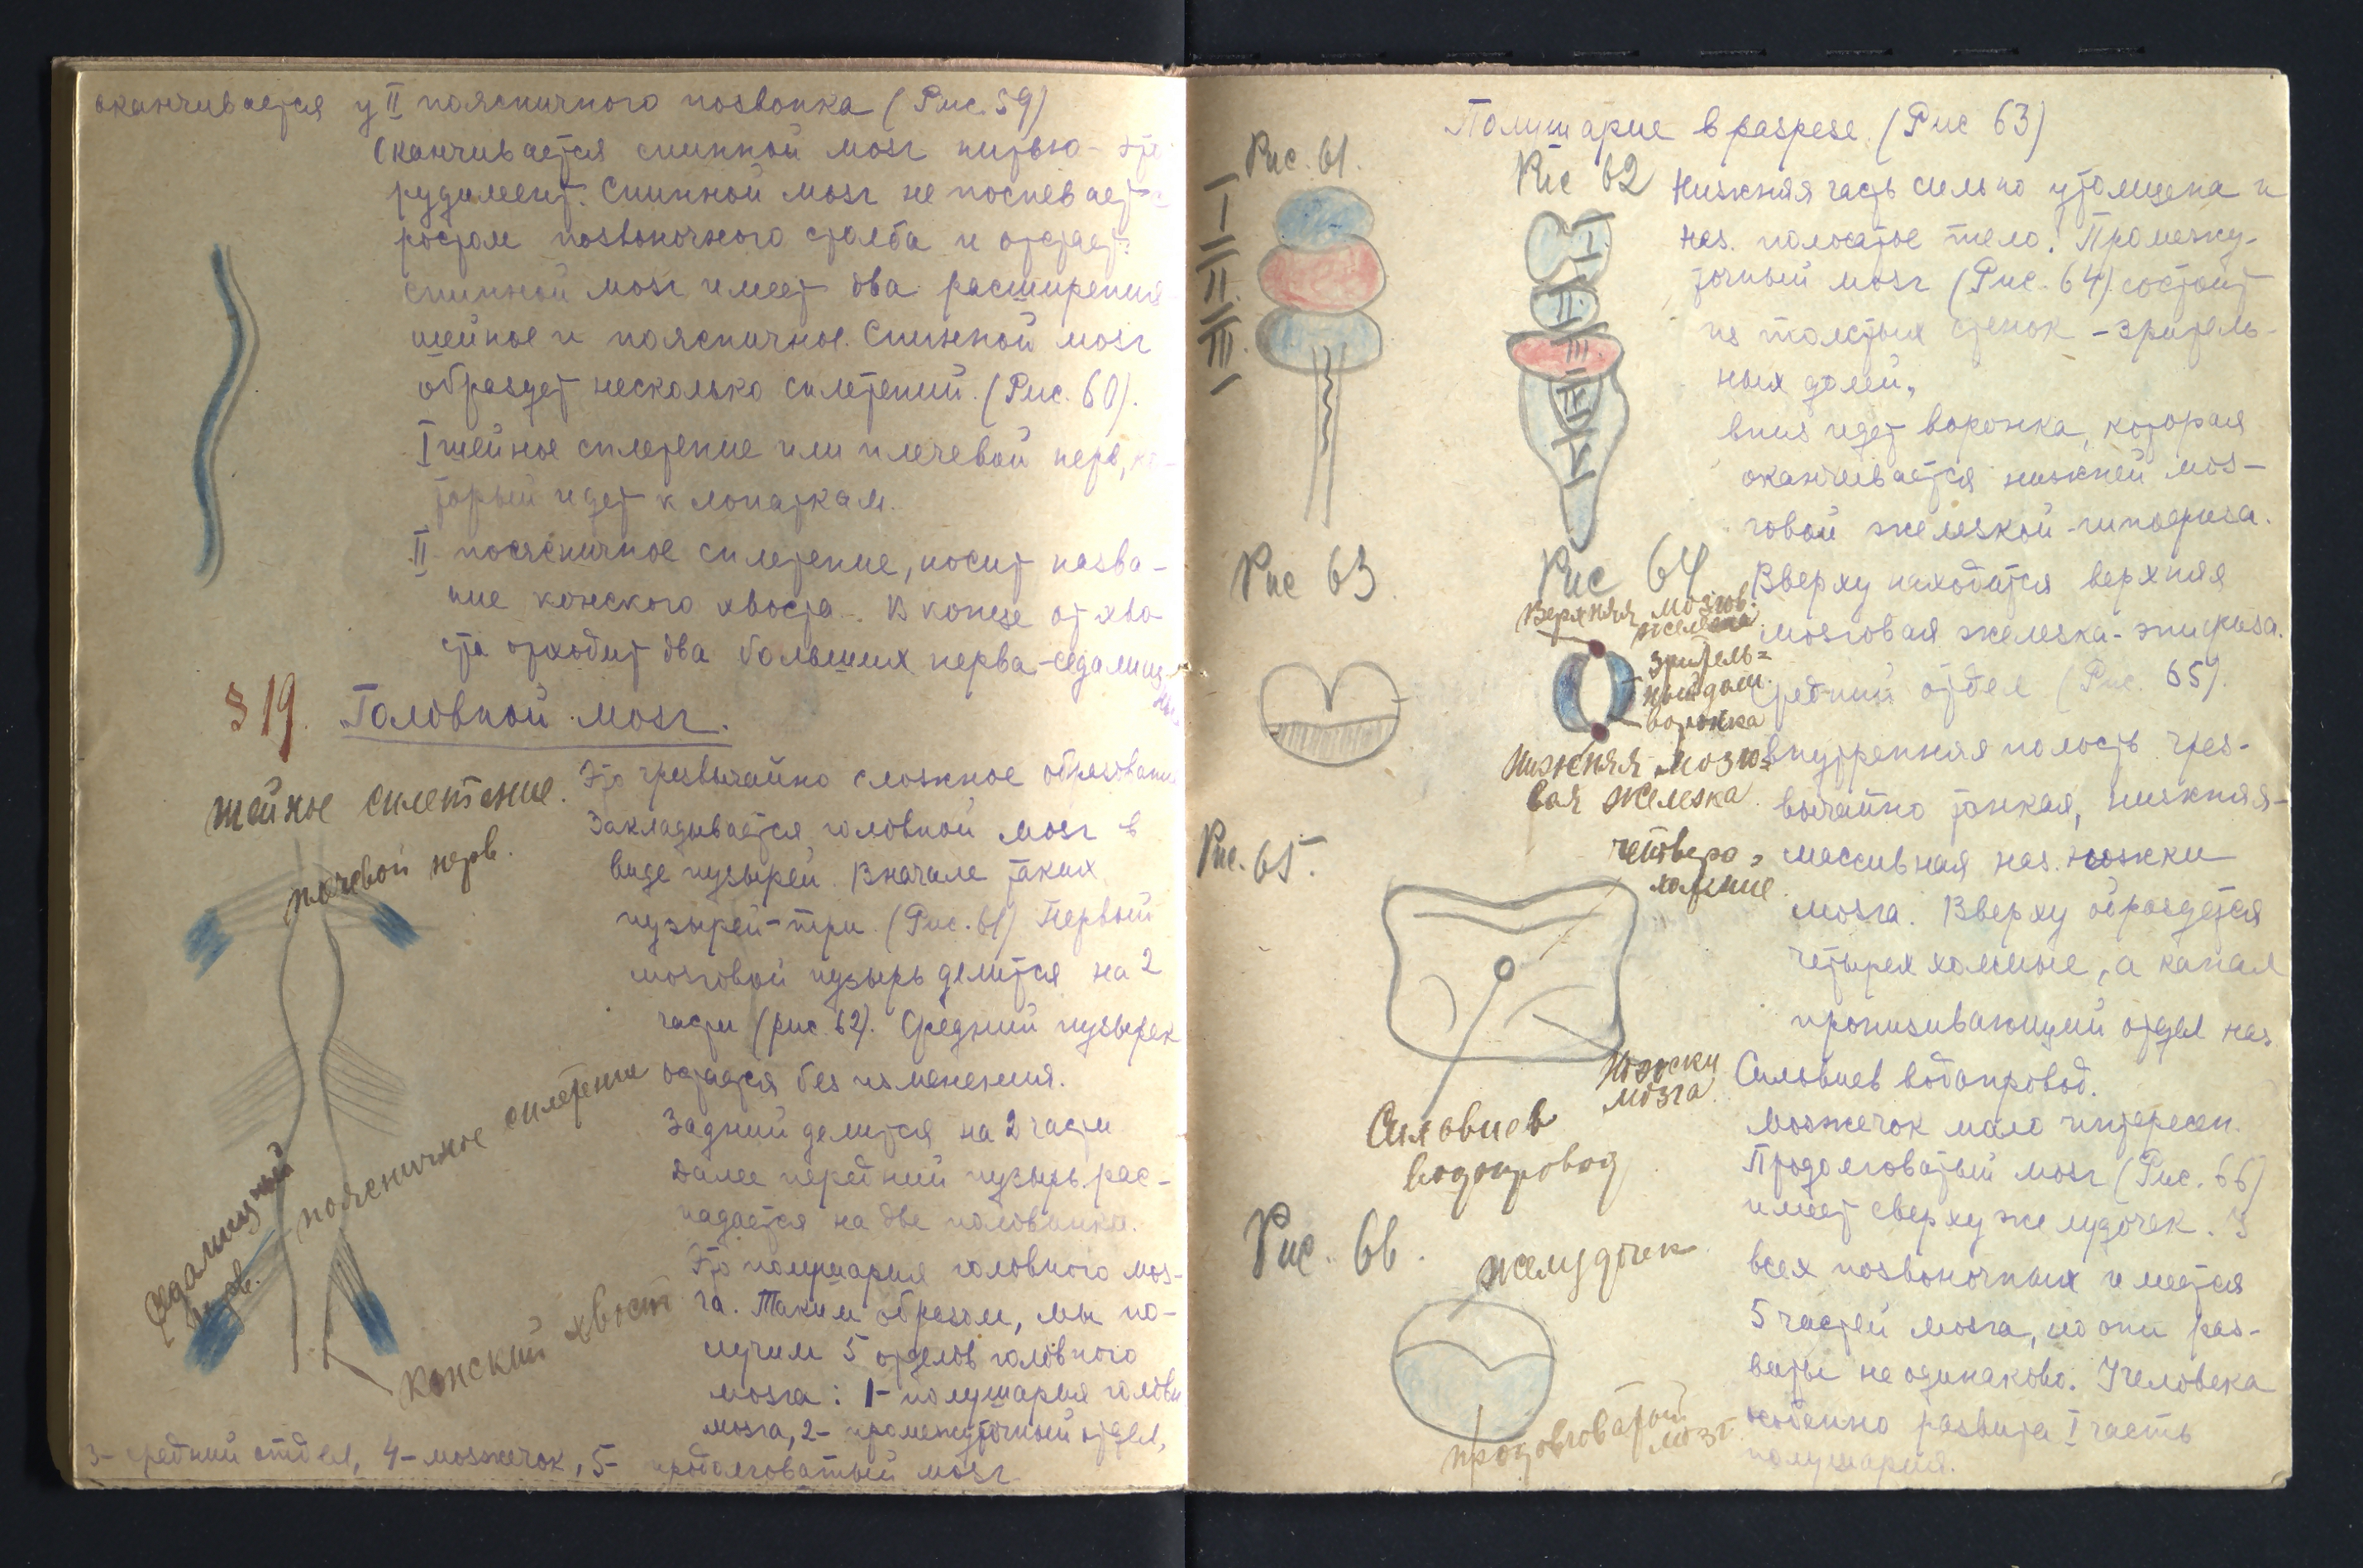 оканчивается у II поясничного позвонка (Рис. 59)
Оканчивается спинной мозг нитью - это
рудимент. Спинной мозг не поспевает с
ростом позвоночного столба и отстает.
Спинной мозг имеет два расширения
шейное и поясничное. Спинной мозг
образует несколько сплетений. (Рис. 60).
I шейное сплетение или плечевой нерв, ко-
торый идет к лопаткам.
II поясничное сплетение, носит назва-
ние конского хвоста. В конце от хво
ста отходит два больших нерва - седалищ-
ны
§ 19. Головной мозг.
шейное сплетение.
плечевой нерв.
поясничное сплетение
Седалищный
нерв.
Конский хвост
Это чрезвычайно сложное образование
Закладывается головной мозг в
виде пузырей. Вначале таких
пузырей - три. (Рис. 61) Первый
мозговой пузырь делится на 2
части (рис. 62). Средний пузырек
остается без изменения.
Задний делится на 2 части
Далее передний пузырь рас-
падается на две половинки.
Это полушария головного моз-
га. Таким образом, мы по-
лучим 5 отделов головного
мозга: 1 - полушария головн
мозга, 2 - промежуточный отдел,
3 - средний отдел, 4 - мозжечок, 5 - продолговатый мозг
Полушарие в разрезе. (Рис 63)
Рис. 61.
I
II
III
Рис 62
I
II
III
IV
V
Нижняя часть сильно утолщена и
наз. полосатое тело. Промежу-
точный мозг (Рис. 64) состоит
из толстых стенок - зритель-
ных долей,
вниз идет воронка, которая
оканчивается нижней моз-
говой железкой - гипофиза.
Вверху находится верхняя
мозговая железка - эпифиза.
Средний отдел (Рис. 65).
внутренняя полость чрез-
вычайно тонкая, нижняя -
массивная наз. ножки
мозга. Вверху образуется
четырех холмие, а канал
пронизывающий отдел наз.
Сильвиев водопровод.
Мозжечок мало интересен.
Продолговатый мозг (Рис. 66)
имеет сверху желудочек. У
всех позвоночных имеется
5 частей мозга, но они раз-
виты не одинаково. У человека
особенно развита I часть
полушария.
Рис 63.
Рис 64
Верхняя мозгов.
железка
зритель=
ный доли.
воронка
Нижняя мозго=
вая железка.
Рис. 65.
четверо=
холмие.
Ножки
мозга.
Сильвиев
водопровод
Рис. 66.
желудочек
продолговатый
мозг.